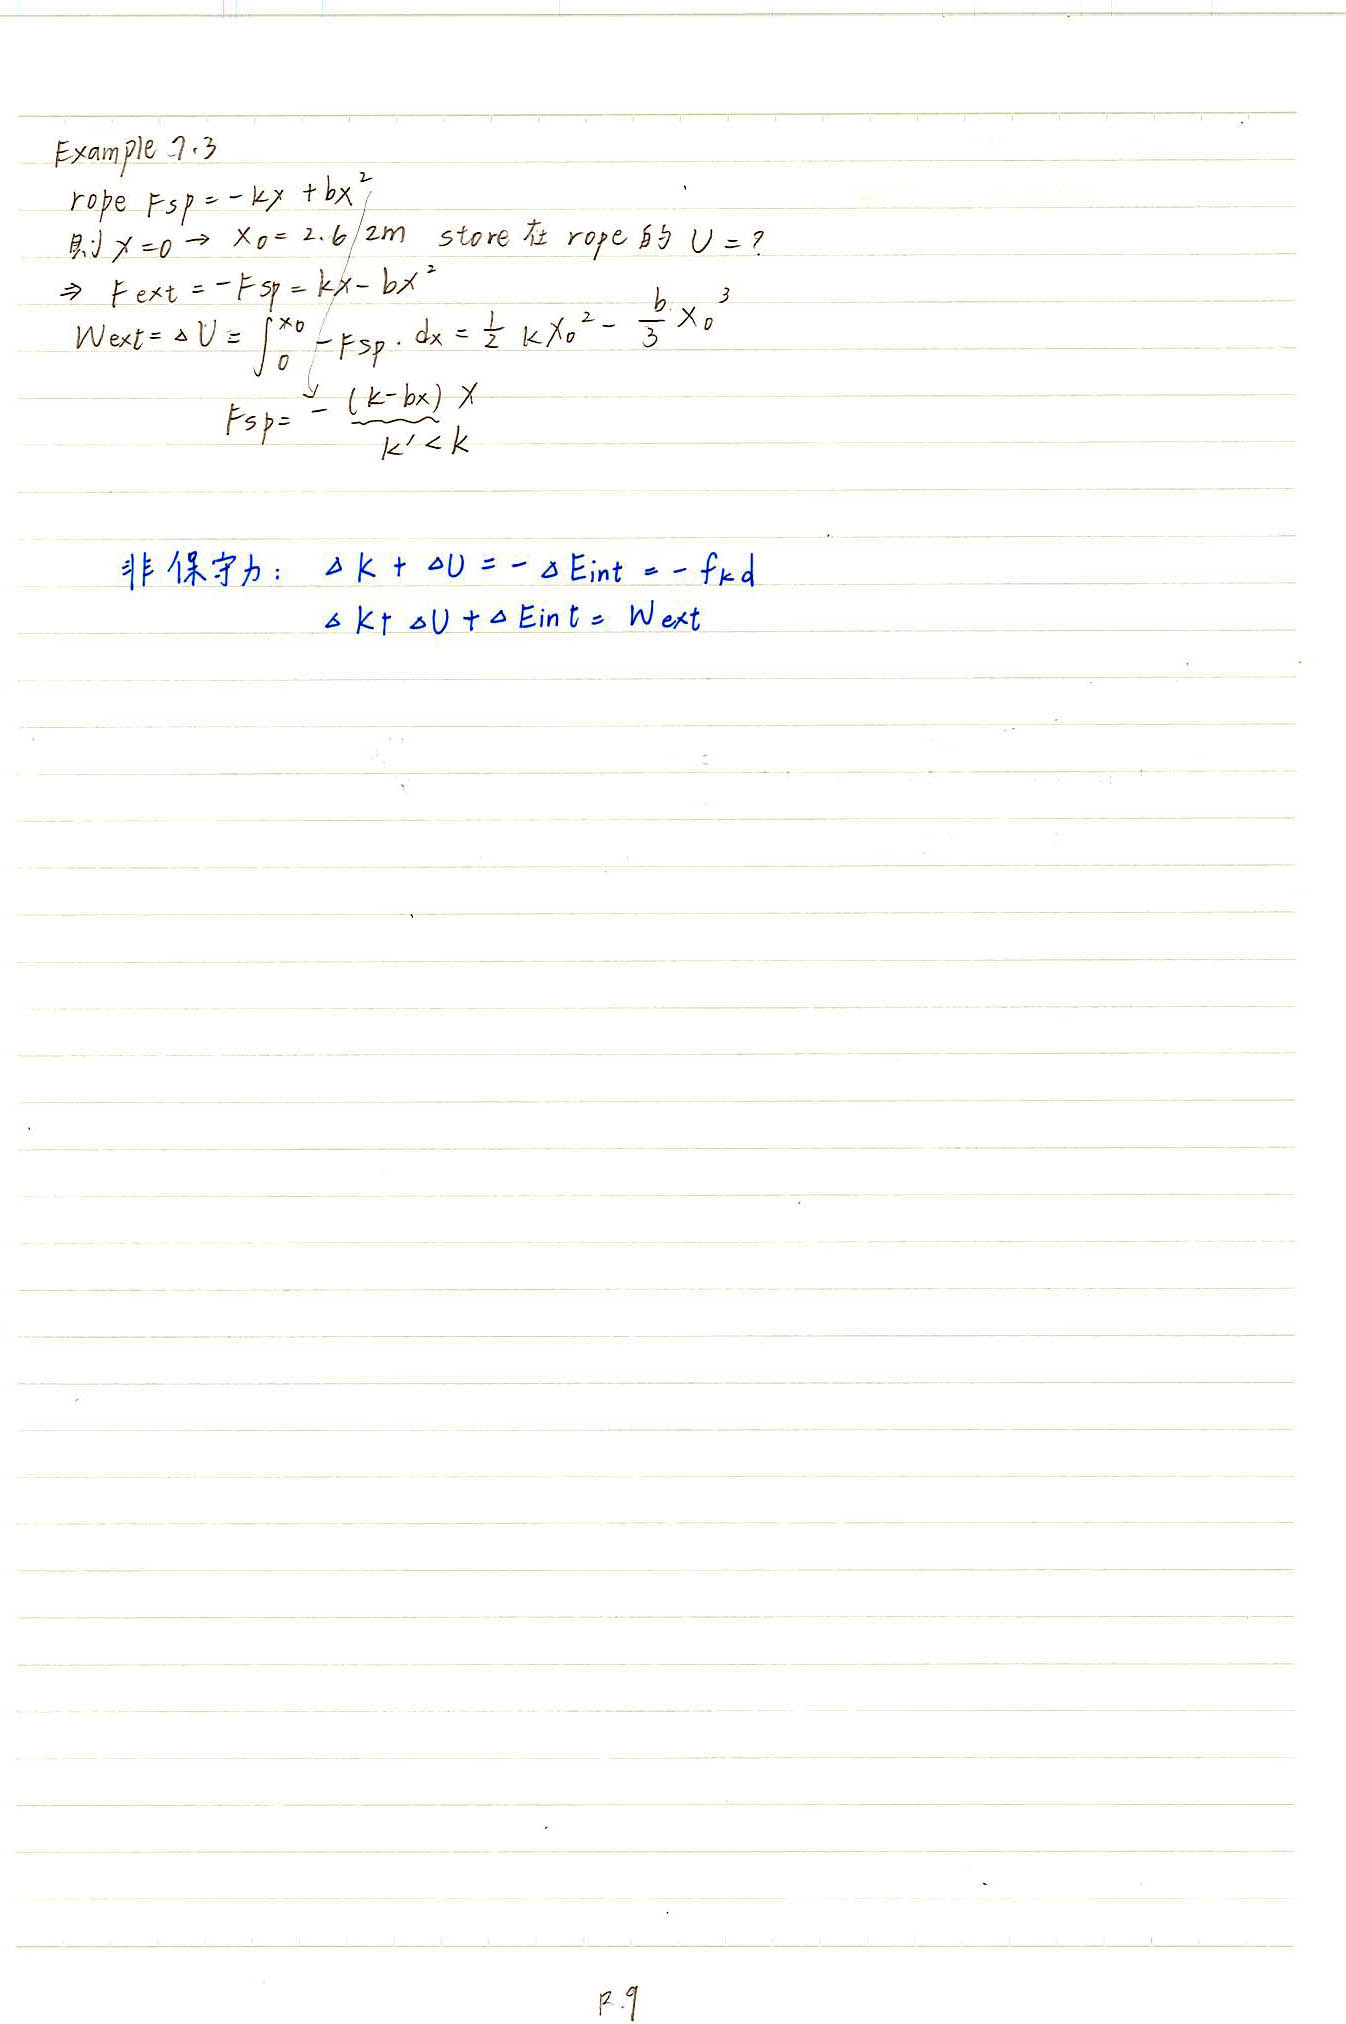 Example 7.3
rope Fsp = -kx + bx²
則 x=0 → x₀ = 2.62m store 在 rope 的 U = ?
⇒ Fext = -Fsp = kx - bx²
Wext = ΔU = ∫₀^x₀ -Fsp · dx = 1/2 kx₀² - b/3 x₀³
Fsp = - (k-bx) x
k' < k
非保守力: ΔK + ΔU = -ΔEint = -fkd
ΔK + ΔU + ΔEint = Wext
P.9